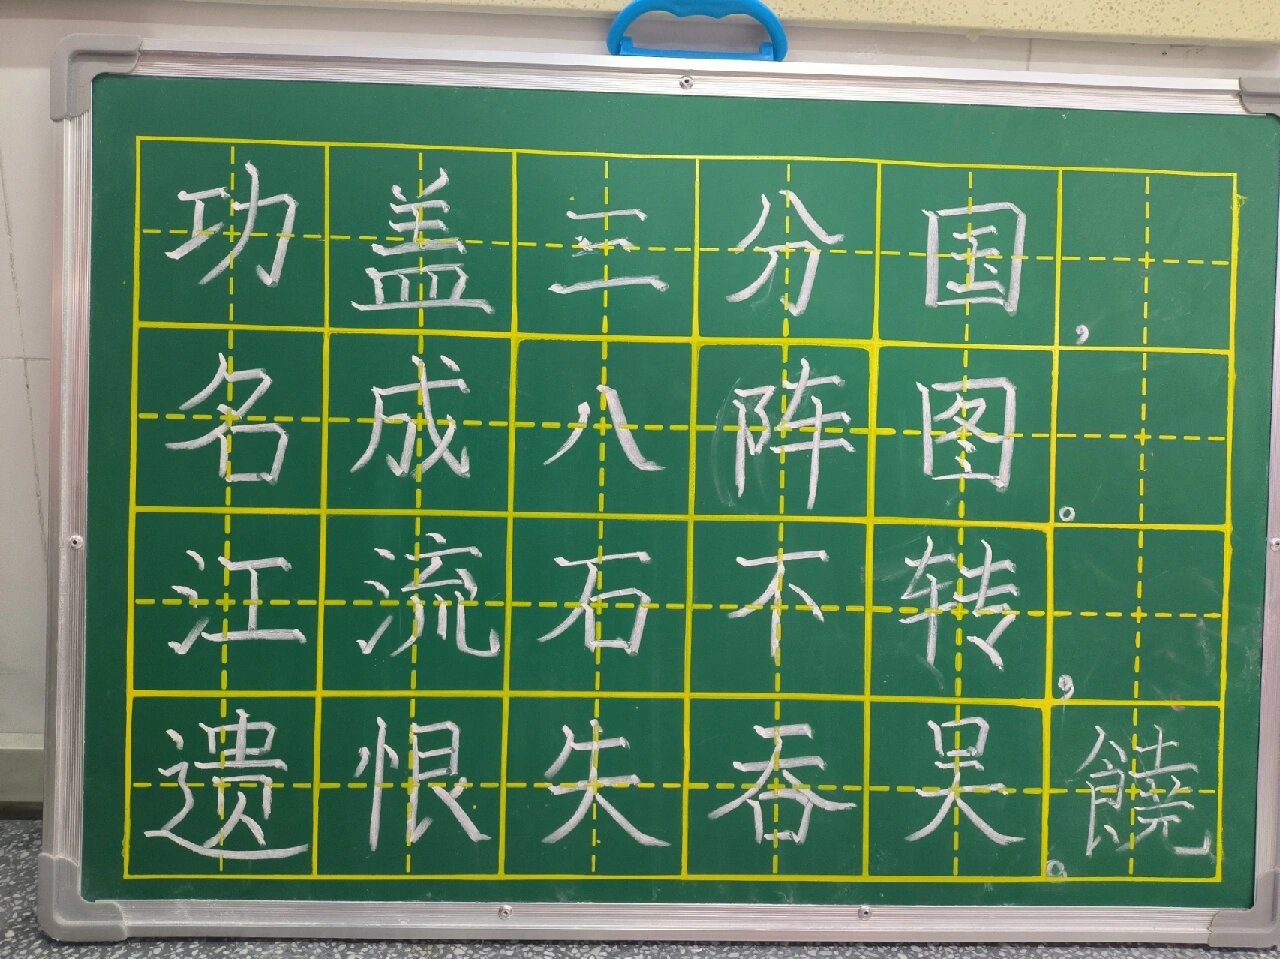 功盖三分国，
名成八阵图。
江流石不转，
遗恨失吞吴。饶